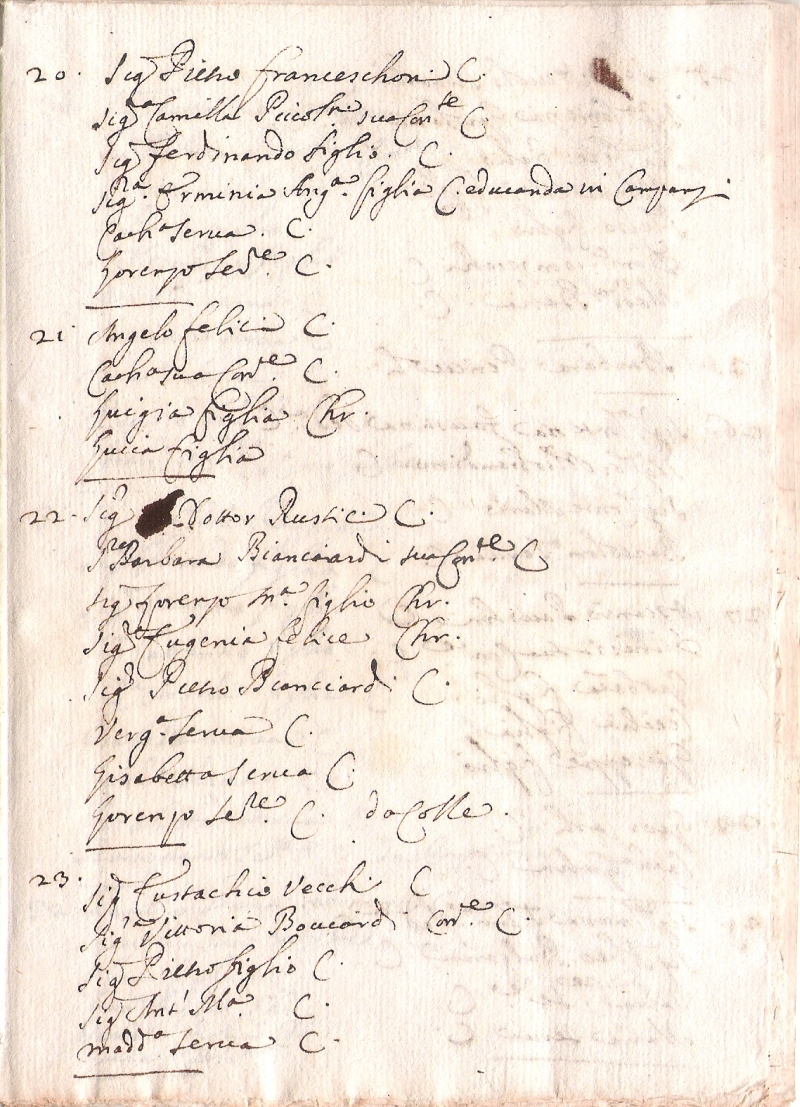 20. Sig.r Pietro Franceschini C.
Sig.ra Camilla Piccol.ni sua Con.te C.
Sig.r Ferdinando figlio. C.
Sig.ra Erminia Ang.a figlia C. educanda in
Cat.a serva. C.
Lorenzo Ser.re C.
21. Angelo Felici C.
Cat.a sua Con.te C.
Luigia figlia Chr.
Lucia figlia
22. Sig.r Dottor Rustici C.
Barbara Bianciardi sua Con.te C.
Sig.r Lorenzo M.a figlio Chr.
Sig.ra Eugenia Felice Chr.
Sig.r Pietro Bianciardi C.
Verg.a serva C.
Lisabetta serva C.
Lorenzo Se.re C. da Colle.
23. Sig.r Eustachio Vecchi C
Sig.ra Vittoria Con.te C.
Sig.r Pietro figlio C.
Sig.r Ant.o M.a C.
Madd.a serva C.